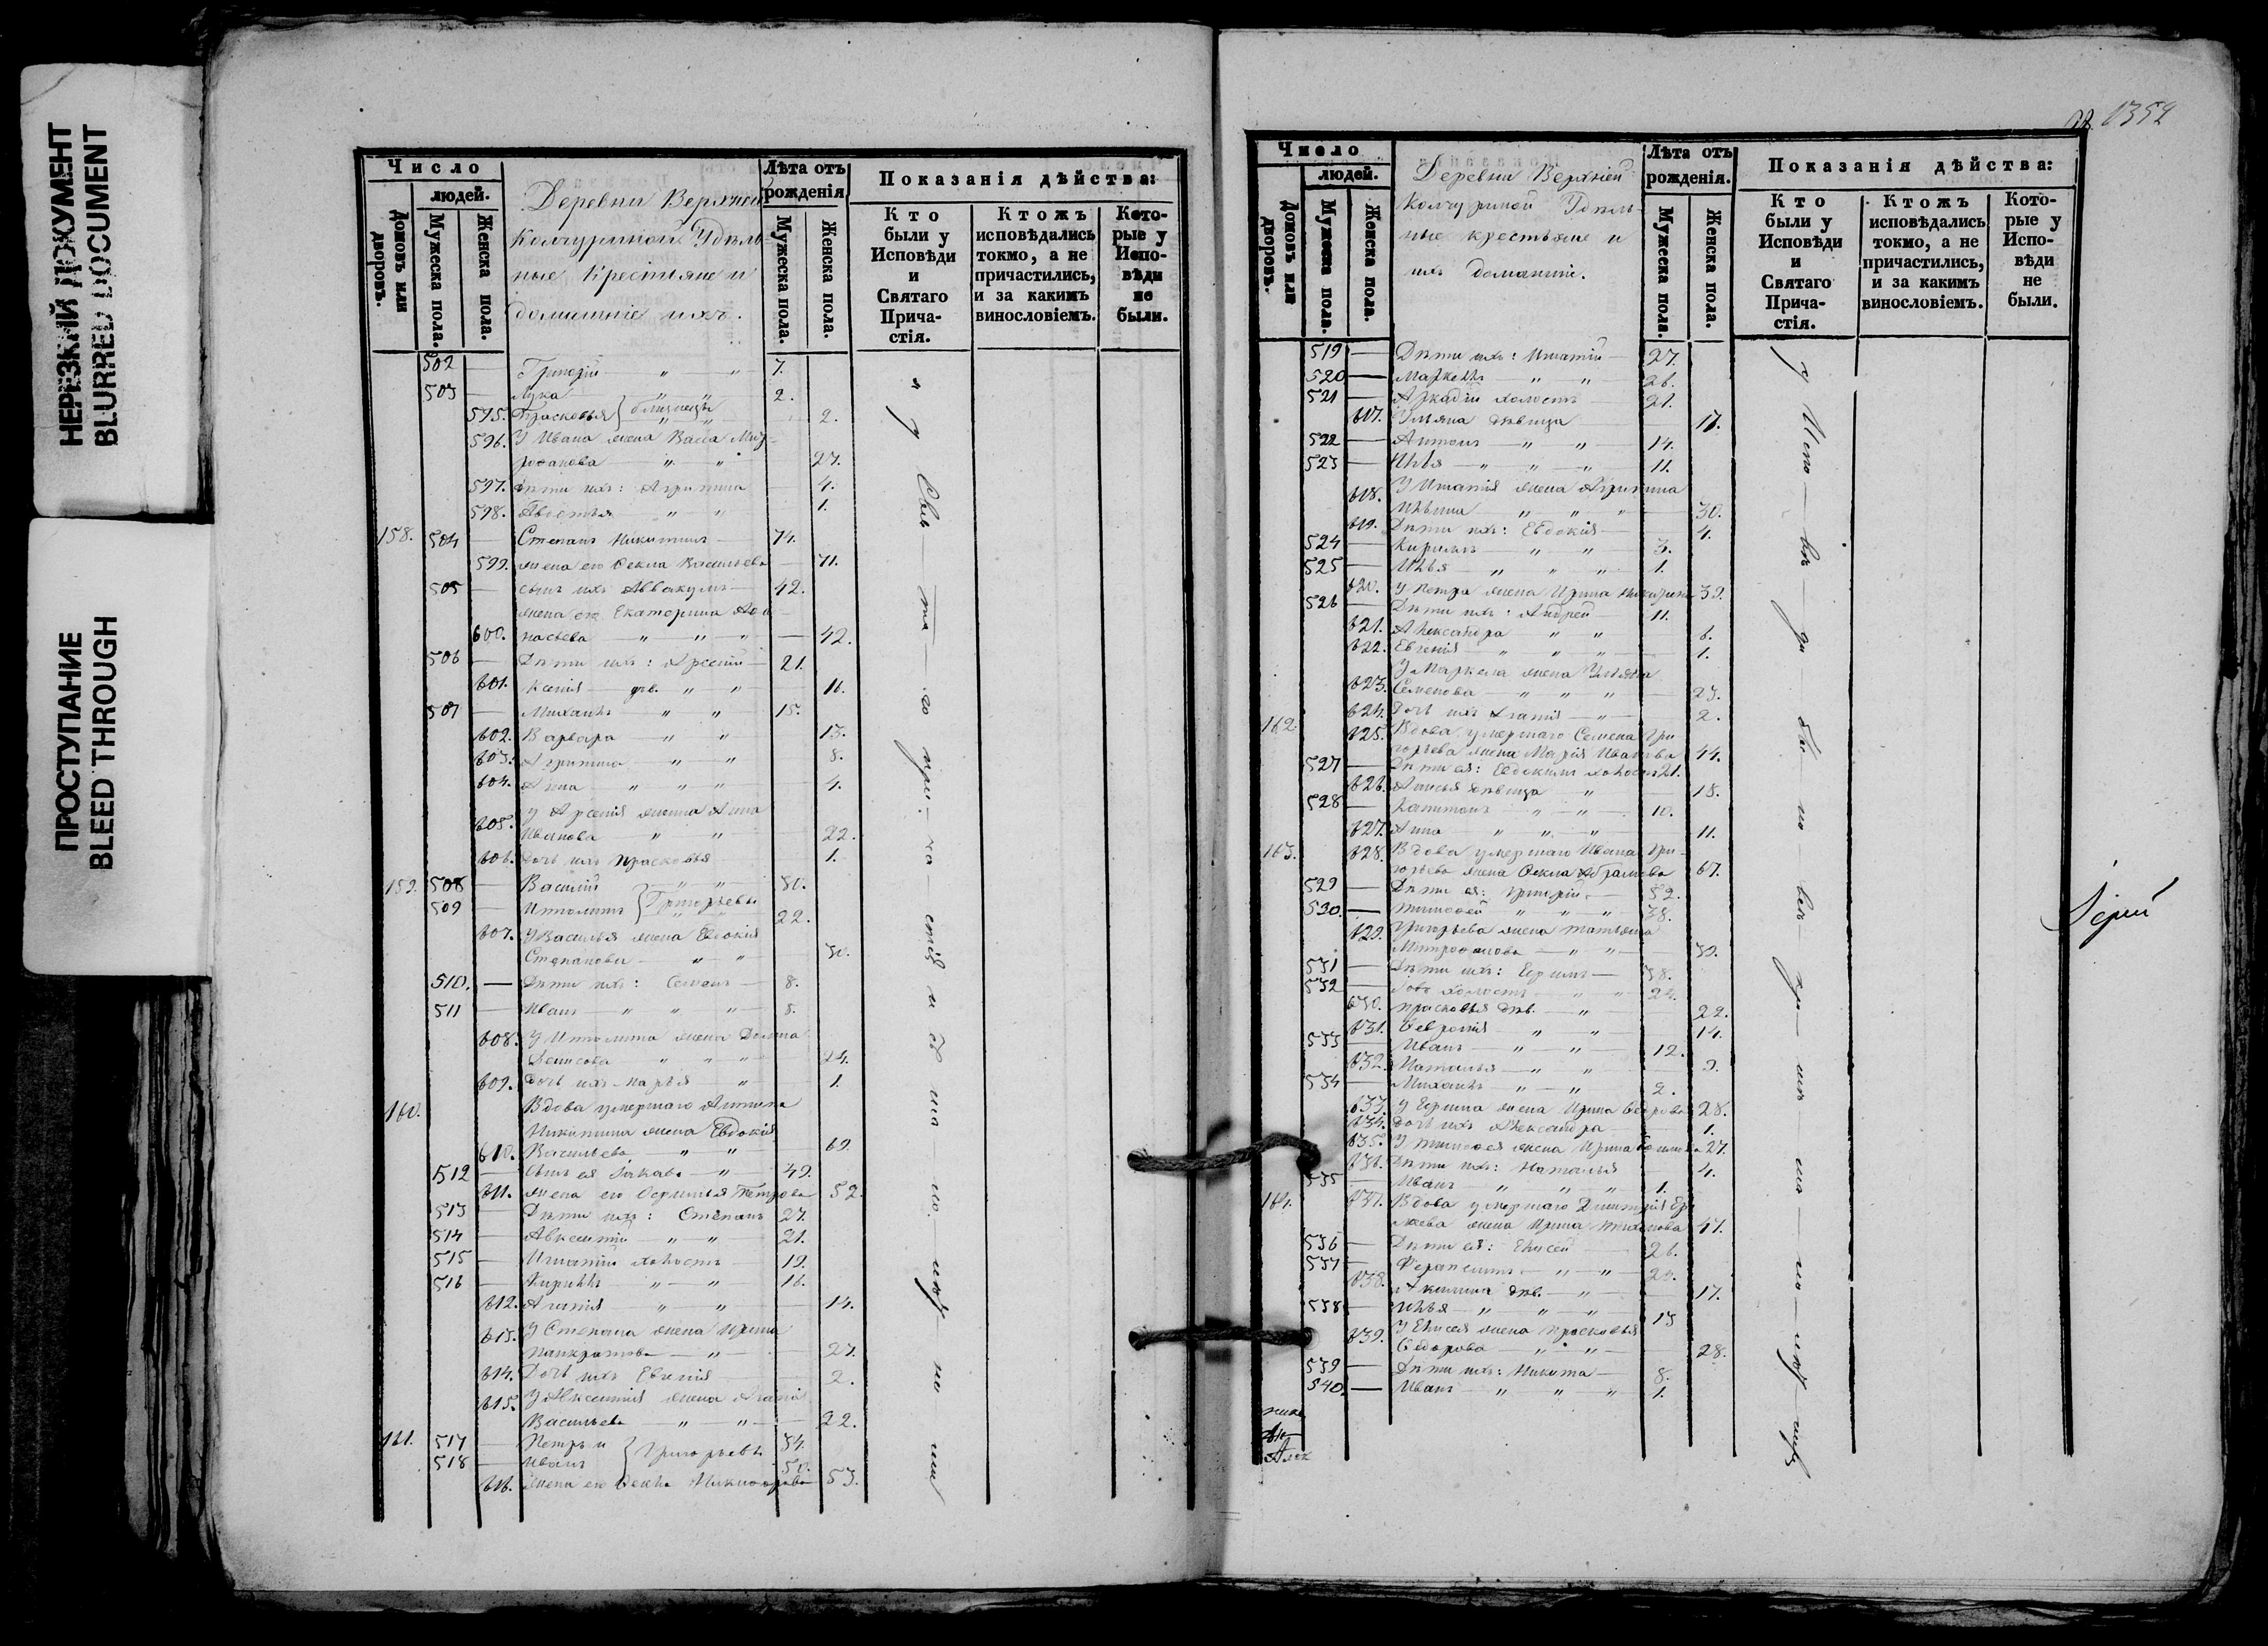 НЕРЕЗКИЙ ДОКУМЕНТ
BLURRED DOCUMENT
ПРОСТУПАНИЕ
BLEED THROUGH
Число
людей.
Домовъ или дворовъ.
Мужеска пола.
Женска пола.
Деревни Верхней
Колчуриной Удѣль-
ные Крестьяне и
домашніе ихъ.
Лѣта отъ рожденія.
Мужеска пола.
Женска пола.
Показанія дѣйства:
Кто были у Исповѣди и Святаго Причастія.
Ктожъ исповѣдались токмо, а не причастились, и за какимъ винословіемъ.
Которые у Исповѣди не были.
502 — Григорій — " — " — 7.
503 — Лука — " — 2.
595. Прасковья } близнецы — " — 2.
596. У Ивана жена Васса Мит-
рофанова " — " 27.
597. Дѣти ихъ: Агрипина — 4.
598. Авдотья — " — " — 1.
158. 504 — Степанъ Никитинъ — 74.
599. жена его Фекла Васильева — 71.
505 — сынъ ихъ Аввакумъ — 42.
жена его Екатерина Афа-
600. насьева — " — " — " — 42.
506 — Дѣти ихъ: Арсеній — 21.
601. Ксенія — дѣв. " — " — 16.
507 — Михаилъ — " — " — 15.
602. Варвара — " — " 13.
603. Агрипина — " — " 8.
604. Анна — " — " — " 4.
У Арсенія жена Анна
605. Иванова " — " — 22.
606. Дочь ихъ Прасковья — 1.
159. 508 — Василій
509 — Ипполитъ } Григорьевы — 22.
607. У Василья жена Евдокія
Степанова — " — " —
510. — Дѣти ихъ: Семенъ — 8.
511 — Иванъ — " — " — " — 5.
608. У Ипполита жена Домна
Денисова " — " — " — 24.
609. Дочь ихъ Марья — " — 1.
160. Вдова умершаго Антипа
Никитина жена Евдокія
610. Васильева — " — " 69.
512 — Сынъ ея Іаковъ — " — 49.
611. жена его Ефимья Петрова 52.
513 — Дѣти ихъ: Степанъ 27.
514 — Авксентій — " — " — 21.
515 — Игнатій холостъ — 19.
516 — Кириллъ — " — " — 16.
612. Агапія — " — " — 14.
613. У Степана жена Ирина
Панкратова — " — 27.
614. Дочь ихъ Евгенія — 2.
615. У Авксентія жена Агапія
Васильева — " — " — 22.
161. 517 — Петръ и
518 — Иванъ } Григорьевы 54. 50.
616. жена его Фекла Никифорова 53.
1352
Число
людей.
Домовъ или дворовъ.
Мужеска пола.
Женска пола.
Деревни Верхней
Колчуриной Удѣль-
ные крестьяне и
ихъ домашніе.
Лѣта отъ рожденія.
Мужеска пола.
Женска пола.
Показанія дѣйства:
Кто были у Исповѣди и Святаго Причастія.
Ктожъ исповѣдались токмо, а не причастились, и за какимъ винословіемъ.
Которые у Исповѣди не были.
519 — Дѣти ихъ: Игнатій — 27.
520 — Маркелъ — " — " — 26.
521 — Аркадій холостъ — 21.
617. Ульяна дѣвица — 17.
522 — Антонъ — " — " — 14.
523 — Илья — " — " — " — 11.
618. У Игнатія жена Агрипина
Ильина " — " — " — 30.
619. Дѣти ихъ: Евдокія — 4.
524 — Кириллъ — " — " — 3.
525 — Илья — " — " — " — 1.
620. У Петра жена Ирина 32.
526 — Дѣти ихъ: Андрей — 11.
621. Александра " — " — 6.
622. Евгенія — " — " — " — 1.
У Маркела жена Ульяна
623. Семенова — " — " — " — 23.
624. Дочь ихъ Агапія — " — 2.
162. 625. Вдова умершаго Семена Гри-
горьева жена Марія Иванова 44.
527 — Дѣти ея: Евдокимъ холостъ 21.
626. Анисья дѣвица — " — 18.
528 — Капитонъ — " — " — 10.
627. Анна — " — " — " — 11.
163. 628. Вдова умершаго Ивана Гри-
горьева жена Фекла Абрамова 67.
529 — Дѣти ея: Григорій — 52.
530. — Тимофей " — " — " — 38.
629. Григорьева жена Татьяна
Митрофанова — " — " — 52.
531 — Дѣти ихъ: Ефимъ —
532 — Іовъ холостъ — " — " 24.
630. Прасковья дѣв. — " — 22.
631. Февронія — " — " — 14.
533 — Иванъ — " — " — 12.
632. Наталья — " — " — 9.
534 — Михаилъ — " — " — 2.
633. У Ефима жена Ирина Федорова 28.
634. Дочь ихъ Александра — 1.
635. У Тимофея жена Ирина 27.
636. Дѣти ихъ: Наталья — 4.
535 — Иванъ — " — " — " 1.
164. 637. Вдова умершаго Дмитрія
жена Ирина Тихонова 47.
536 — Дѣти ея: Елисей — 26.
537 — Ферапонтъ — " — " —
638. Акилина дѣв. — " — 17.
538 — Илья — " — " — " — 13
639. У Елисея жена Прасковья
Федорова — " — " — 28.
539 — Дѣти ихъ: Никита — 8.
540. — Иванъ — " — " — " 1.
Іерей